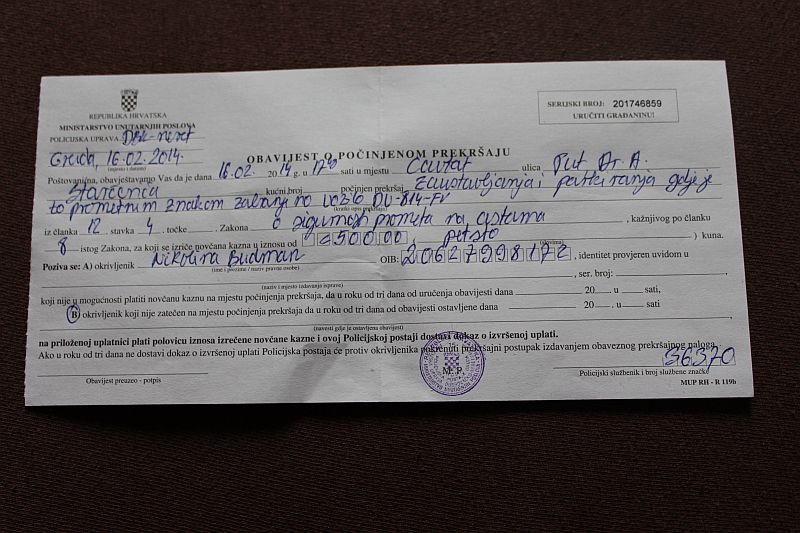 REPUBLIKA HRVATSKA
MINISTARSTVO UNUTARNJIH POSLOVA
POLICIJSKA UPRAVA DBK-neret
SERIJSKI BROJ: 201746859
URUČITI GRAĐANINU!
Gruda, 16.02.2014.
(mjesto i datum)
OBAVIJEST O POČINJENOM PREKRŠAJU
Poštovani/na, obavještavamo Vas da je dana 16.02. 2014 g. u sati u mjestu Cavtat ulica, Put Dr. A.
Starčevića kućni broj počinjen prekršaj zaustavljanja i parkiranja gdje je
to prometnim znakom zabranjeno vozilo DU-814-FV
(kratki opis prekršaja)
iz članka 12 stavka 4, točke - Zakona o sigurnosti prometa na cestama, kažnjivog po članku
8 istog Zakona, za koji se izriče novčana kazna u iznosu od 500,00, (petsto) kuna.
(slovima)
Poziva se: A) okrivljenik Nikolina Budman OIB: , identitet provjeren uvidom u
(ime i prezime / naziv pravne osobe)
, ser. broj: ,
(naziv i mjesto izdavanja isprave)
koji nije u mogućnosti platiti novčanu kaznu na mjestu počinjenja prekršaja, da u roku od tri dana od uručenja obavijesti dana 20 . u sati,
B) okrivljenik koji nije zatečen na mjestu počinjenja prekršaja da u roku od tri dana od obavijesti ostavljene dana 20 . u sati,
(navesti gdje je ostavljena obavijest)
na priloženoj uplatnici plati polovicu iznosa izrečene novčane kazne i ovoj Policijskoj postaji dostavi dokaz o izvršenoj uplati.
Ako u roku od tri dana ne dostavi dokaz o izvršenoj uplati Policijska postaja će protiv okrivljenika pokrenuti prekršajni postupak izdavanjem obaveznog prekršajnog naloga.
36370
M. P.
Obavijest preuzeo - potpis
Policijski službenik i broj službene značke
MUP RH - R 119b